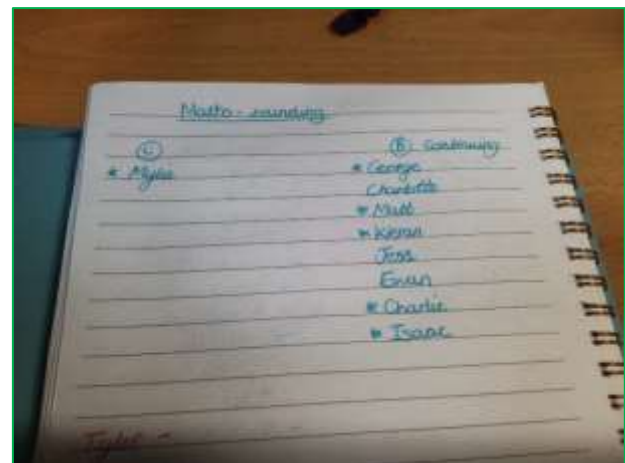 Maths - rounding
Ⓒ
* Mylee
Ⓑ Continuing
* George
Charlotte
* Matt
* Kieran
Jess
Ewan
* Charlie
* Isaac
Tyler -